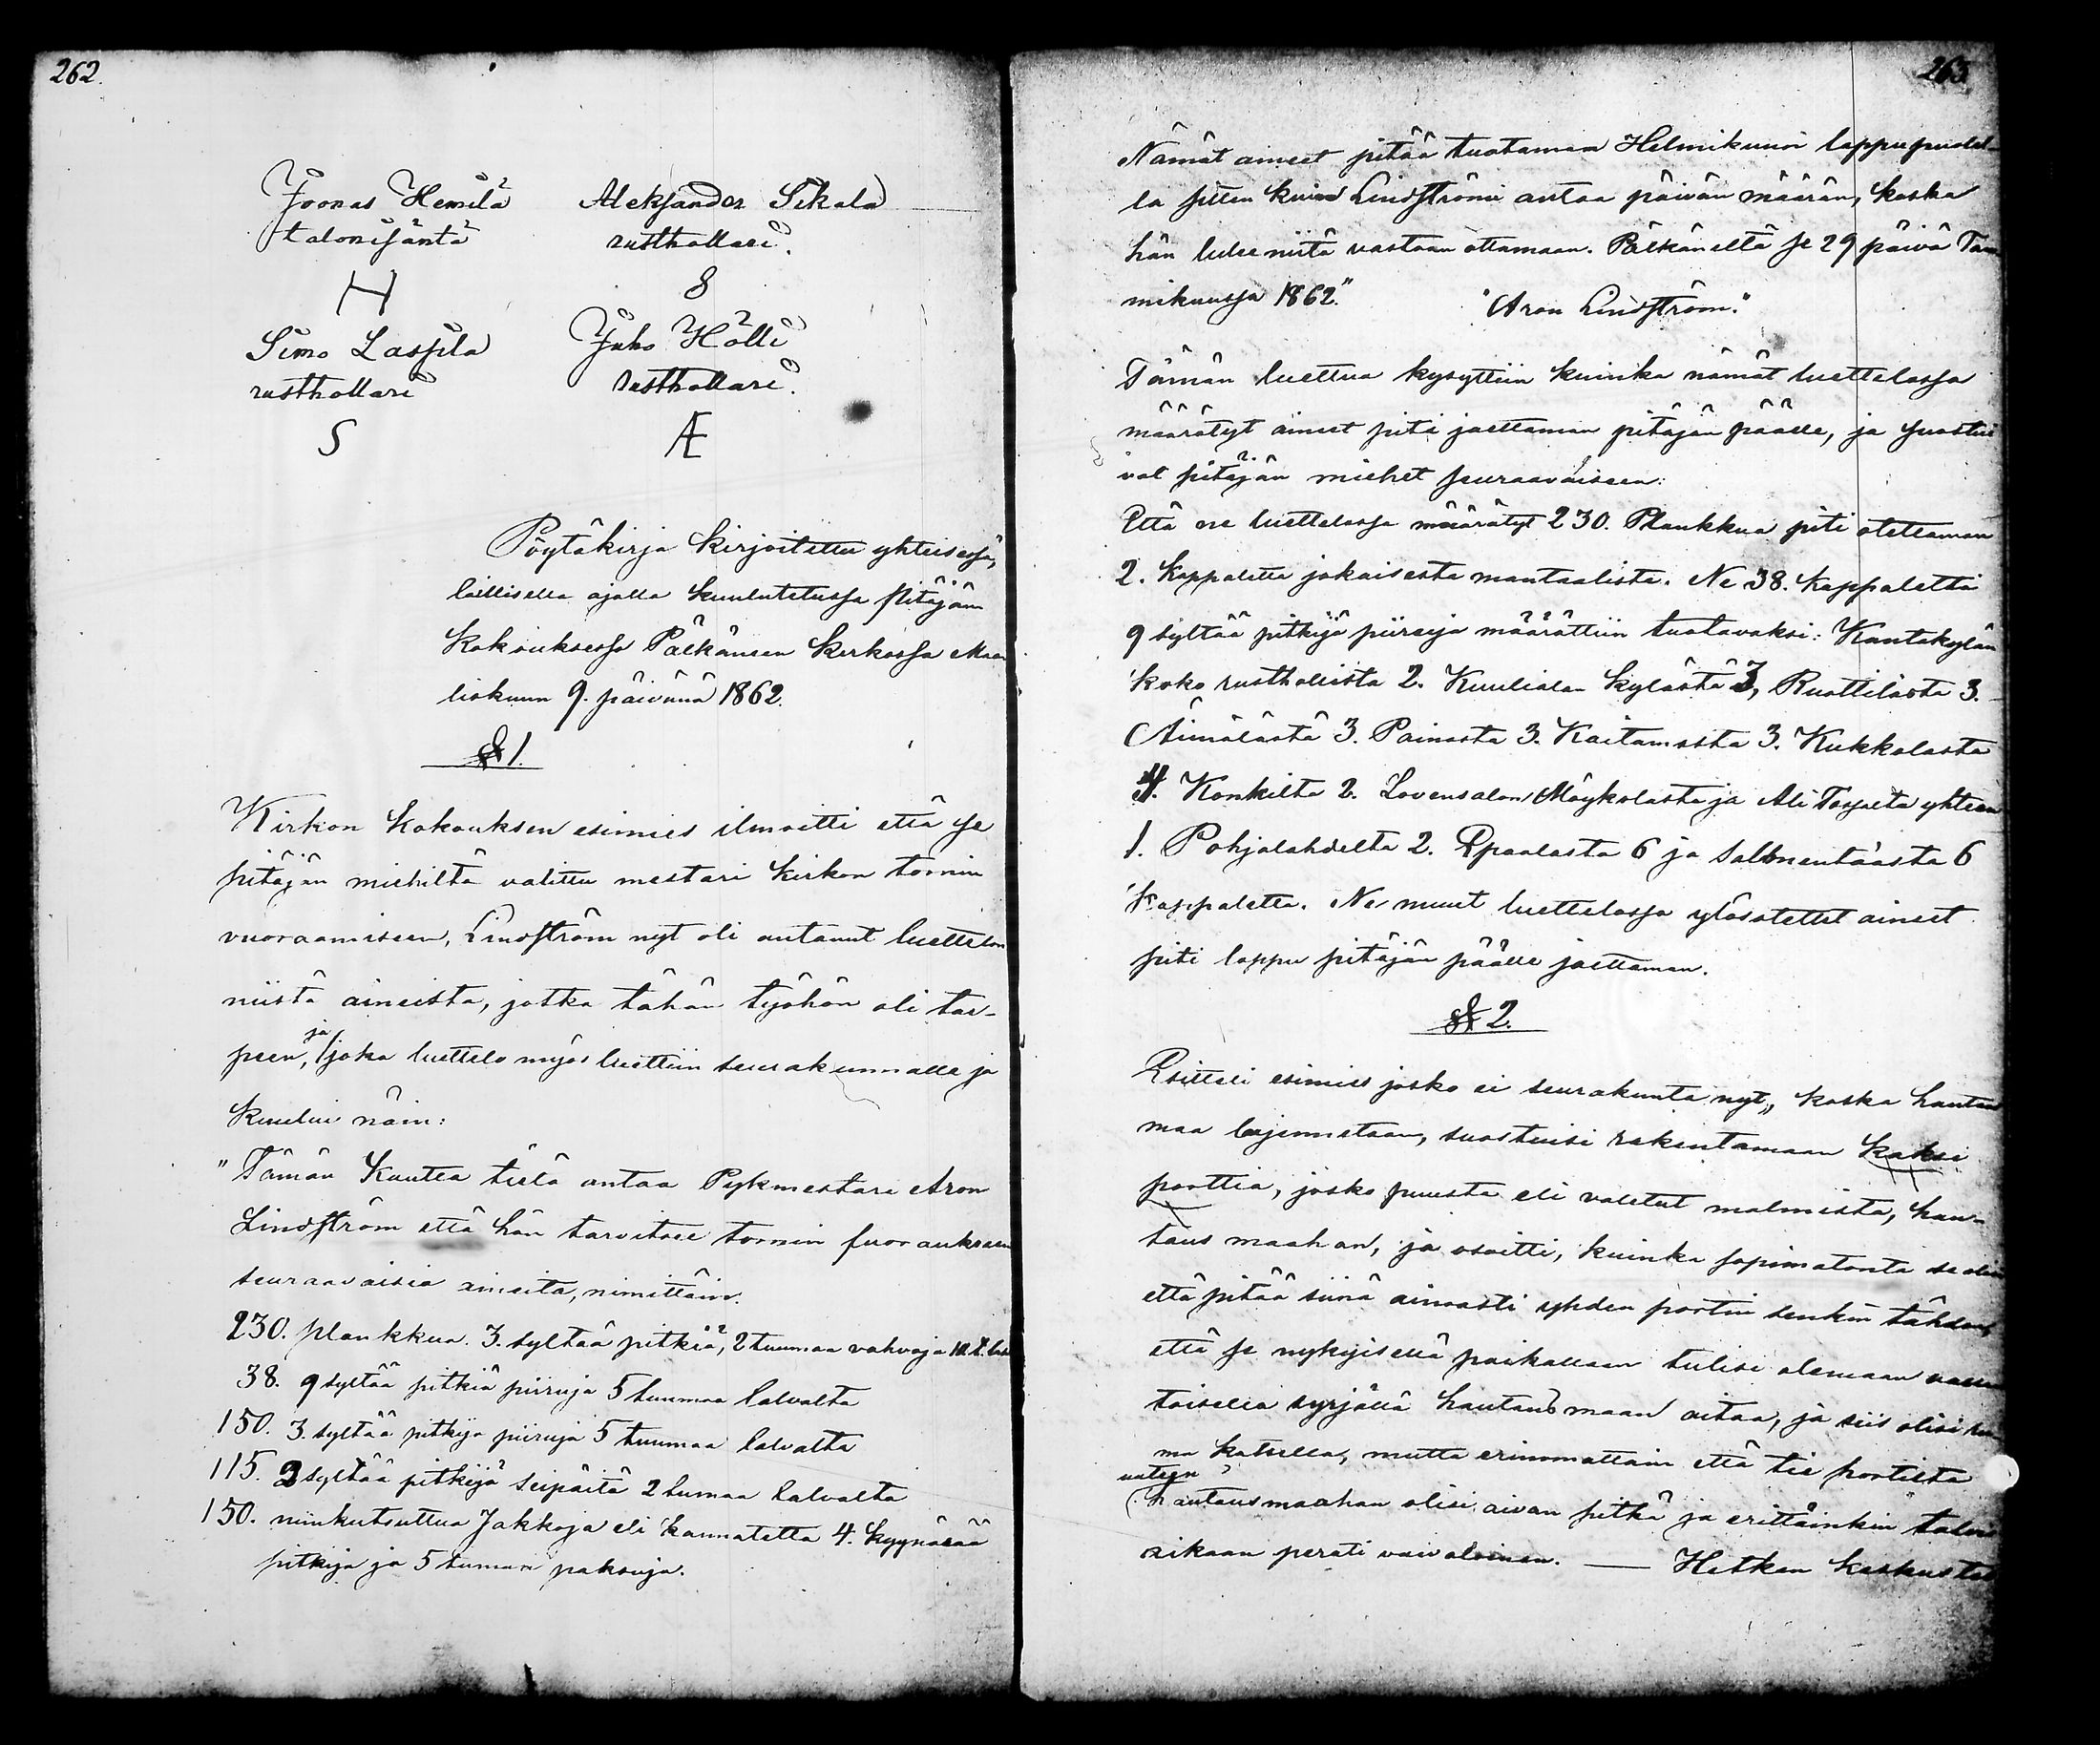 262.
Joonas Hemilä Aleksander Sikala
talonisäntä rusthollari.
H 8
Simo Laspila Juho Hölli
rusthollari rusthollari.
S Æ
Pöytäkirja kirjoitettu yhteisessä,
laillisella ajalla kuulutetussa Pitäjän
Kokouksessa Pälkäneen kirkossa Maa-
liskuun 9. päivänä 1862.
§ 1.
Kirkon kokouksen esimies ilmoitti että se
pitäjän miehiltä valittu mestari kirkon tornin
vuoraamiseen, Lindström nyt oli antanut luettelon
niistä aineista, jotka tähän työhön oli tar-
peen, ja joka luettelo myös luettiin seurakunnalle ja
kuului näin:
"Tämän kautta tietä antaa Pykmestari Aron
Lindström että hän tarvitsee tornin fuoraukseen
seuraavaisia aineita, nimittäin.
230. plankkua. 3. syltää pitkiä, 2 tuumaa vahvoja
38. 9 syltää pitkiä piiruja 5 tuumaa latvalta
150. 3. syltää pitkijä piiruja 5 tuumaa latvalta
115. 2 syltää pitkijä seipäitä 2 tumaa latvalta
150. niinkutsuttua Jakkoja eli kannatetta 4. kyynärää
pitkijä ja 5 tumaa paksuja.
263.
Nämät aineet pitää tuotaman Helmikuun loppupuolel-
la sitten kuin Lindströmi antaa päivän määrän, koska
hän tulee niitä vastaan ottamaan. Pälkäneltä se 29 päivä Tam
mikuussa 1862." "Aron Lindström."
Tämän luettua kysyttiin kuinka nämät luettelossa
määrätyt aineet piti jaettaman pitäjän päälle, ja suostui
vat pitäjän miehet seuraavaiseen:
Että ne luettelossa määrätyt 230. Plankkua piti otettaman
2. kappaletta jokaisesta mantaalista. Ne 38. kappaletta
9 syltää pitkijä piiruja määrättiin tuotavaksi: Kantakylän
koko rusthollista 2. Kuulialan kylästä 3, Ruottilasta 3.
Äimälästä 3. Painosta 3. Kaitamosta 3. Kukkolasta
4. Konkilta 2. Lovensalon Mäykolasta ja Ali Torpalta yhteen
1. Pohjalahdelta 2. Epaalasta 6 ja Salmentaasta 6
kappaletta. Ne muut luettelossa ylösotetut aineet
piti loppu pitäjän päälle jaettaman.
§ 2.
Esitteli esimies josko ei seurakunta nyt, koska hautaus
maa lajennetaan, suostuisi rakentamaan kaksi
porttia, josko puusta eli valetut malmista, hau-
taus maahan, ja osoitti, kuinka sopimatonta se olisi
että pitää siinä ainoasti yhden portin senkin tähden,
että se nykyisellä paikallaan tulisi olemaan
toisella syrjällä hautausmaan aitaa, ja siis olisi ru
ma katsella, mutta erinomattain että tie portista
uuteen hautausmaahan olisi aivan pitkä ja erittäinkin talvis
aikaan peräti vaivaloinen. — Hetken keskustel